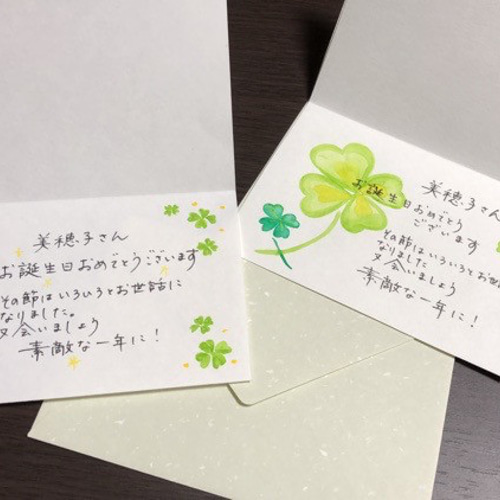 美穂子さん
お誕生日おめでとうございます
その節はいろいろとお世話に
なりました。
又会いましょう
素敵な一年に！
美穂子さん
お誕生日おめでとう
ございます
その節はいろいろとお世
なりました
又会いましょう
素敵な一年に！